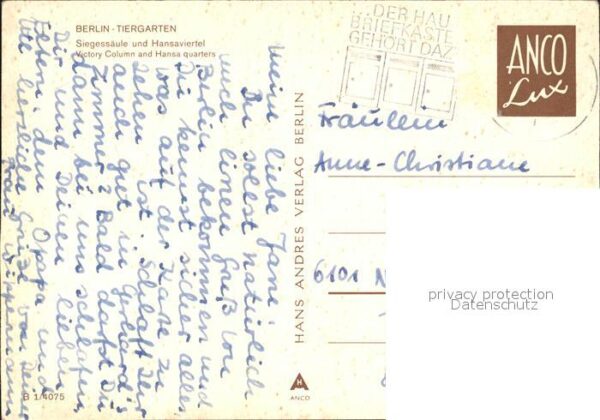 BERLIN - TIERGARTEN
Siegessäule und Hansaviertel
Victory Column and Hansa quarters
DER HAU
BRIEFKASTE
GEHÖRT DAZ
ANCO
Lux
Meine liebe Jani
Du sollst natürlich
auch einen Gruß von
Berlin bekommen und
Du kennst sicher alles
was auf der Karte zu
sehen ist. Schlaft Ihr
auch gut in Gerhard's
Zimmer? Bald darfst Du
dann bei uns schlafen,
Dir und Deinen lieben
Eltern, dem Opapa und
herzliche Grüße von Deiner
Fräulein
Anne-Christiane
6101
HANS ANDRES VERLAG BERLIN
privacy protection
Datenschutz
B 1/4075
H
ANCO